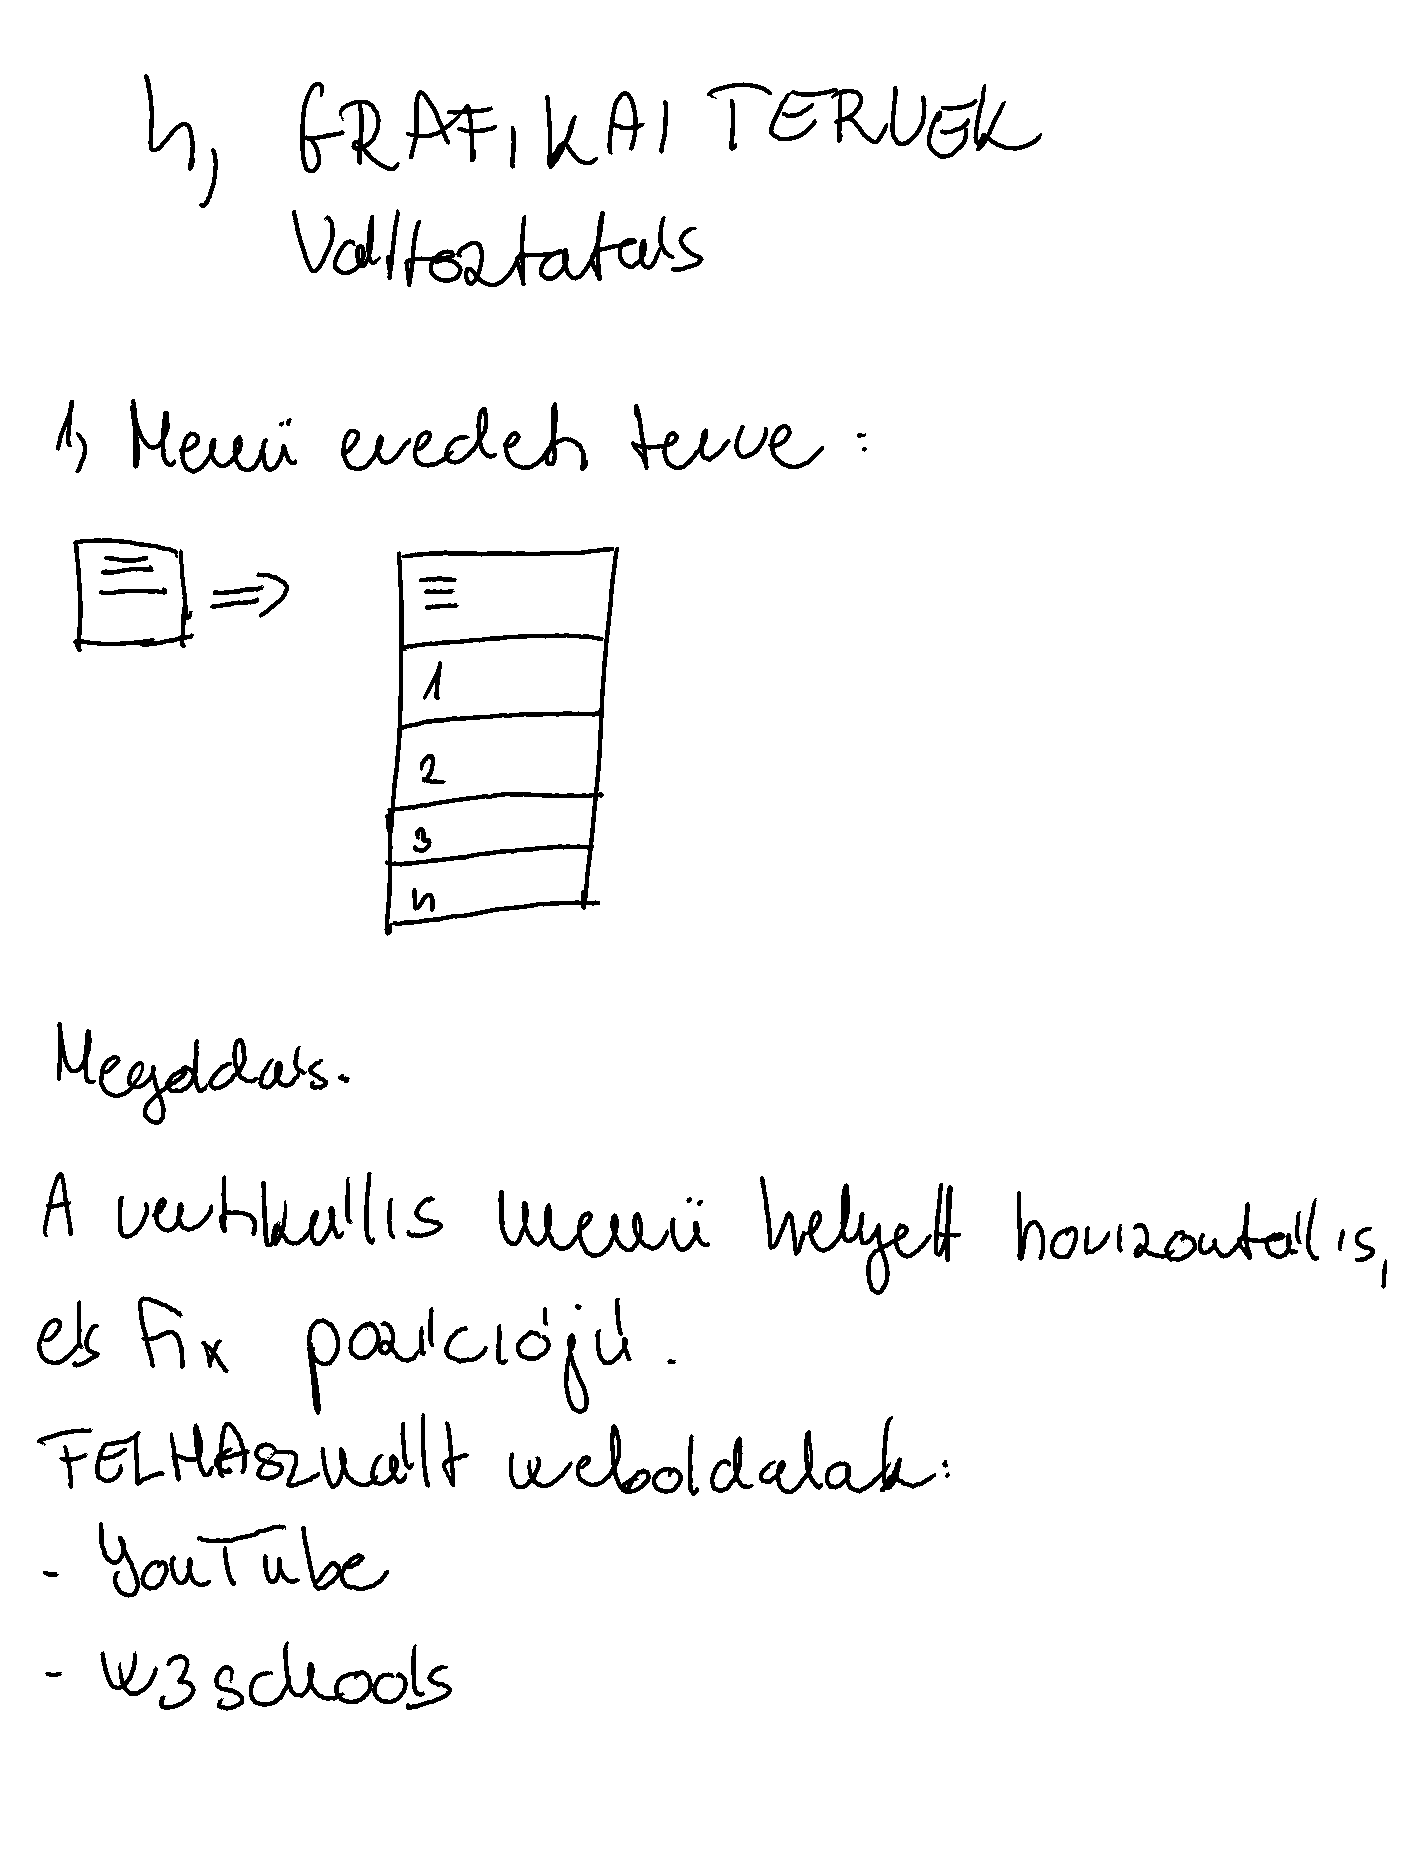 4, GRAFIKAI TERVEK
Változtatás
1, Menü eredeti terve :
1
2
3
4
Megoldás.
A vertikális menü helyett horizontális,
és fix pozíciójú.
FELHASznált weboldalak:
- YouTube
- W3schools